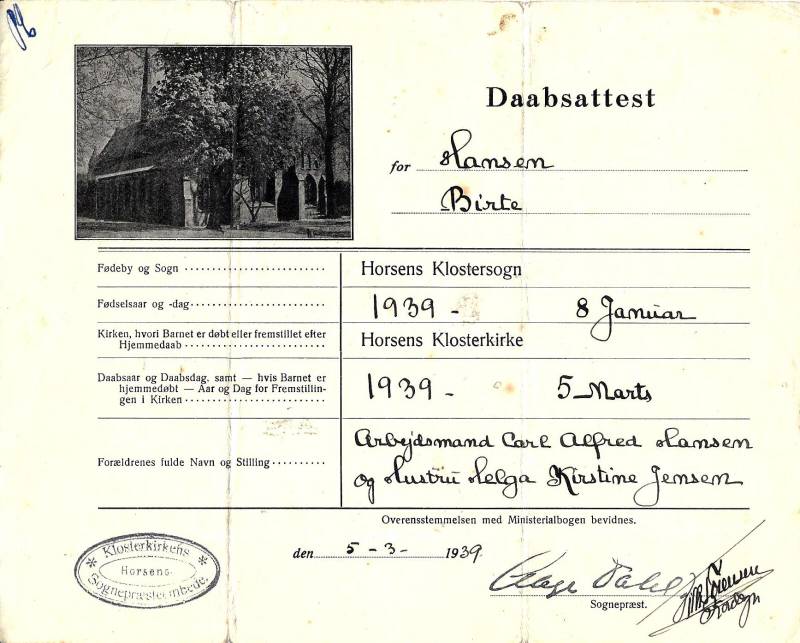 Daabsattest
for Hansen
Birte
Fødeby og Sogn
Horsens Klostersogn
Fødselsaar og -dag
1939 - 8 Januar
Kirken, hvori Barnet er døbt eller fremstillet efter
Hjemmedaab
Horsens Klosterkirke
Daabsaar og Daabsdag, samt — hvis Barnet er
hjemmedøbt — Aar og Dag for Fremstillin-
gen i Kirken
1939 - 5 Marts
Forældrenes fulde Navn og Stilling
Arbejdsmand Carl Alfred Hansen
og Hustru Helga Kirstine Jensen
Overensstemmelsen med Ministerialbogen bevidnes.
den 5 - 3 - 1939
Aage Dahl
Sognepræst.
* Klosterkirkens *
Horsens
Sognepræsteembede.